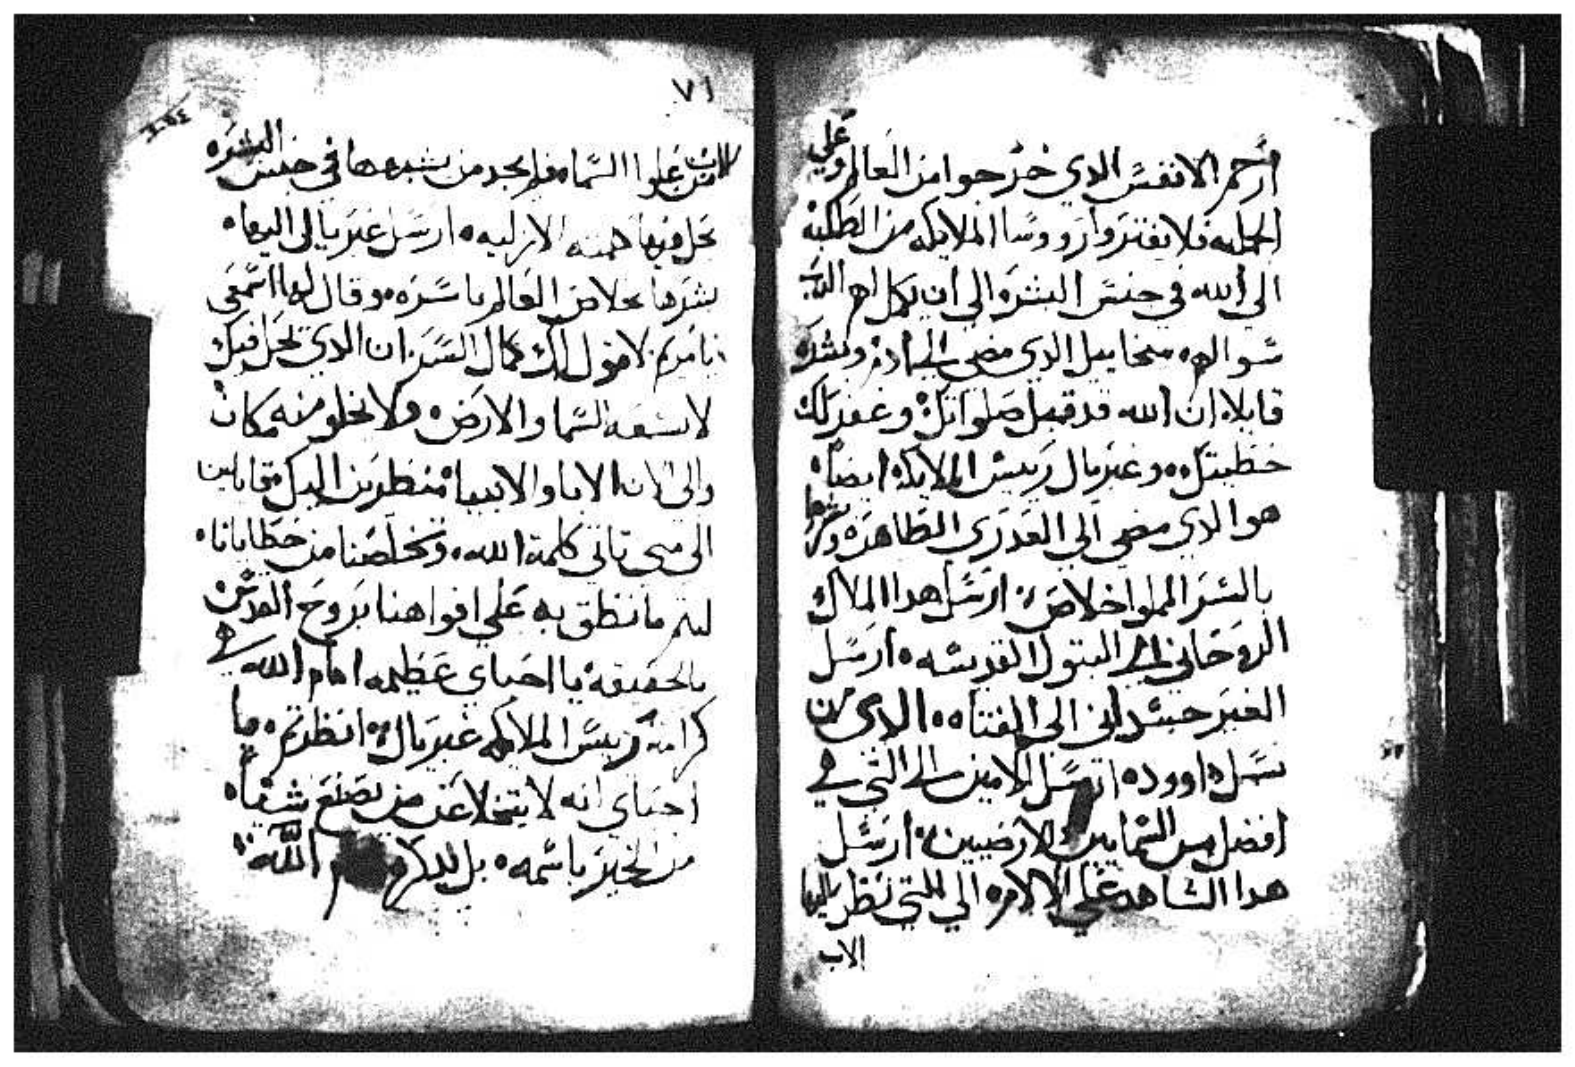 ارحم الانفس الدي خرجوا من العالم وعلي
الجمله فلا يفتروا روسا الملايكه من الطلبه
الي الله في جنس البشره الي ان يكمل لهم الرب
سوالهم ميخاييل الدي مضي الي وبشره
قايلا ان الله قد قبل صلواتك وغفر لك
خطيتك وغبريال رييس الملايكه ايضا
هو الدي مضي الي العدري الطاهره وبشرها
بالسر المملوا خلاص ارسل هدا الملاك
الروحاني الي البتول القديسه ارسل
الغير جسداني الي الفتاه الدي من
نسل داوود ارسل الامين الي التي هي
افضل من السمايين والارضيين ارسل
هدا الشاهد علي الي التي نظر اليها
الاب
٧١
الاب من علوا السماء فلم يجد من يشبهها في جنس البشره
تحل فيها الازليه ارسل غبريال اليها
بشرها بخلاص العالم باسره وقال لها اسمعي
يا مريم لاقول لك كمال السر ان الدي يحل فيك
لا تسعه السما والارض ولا يخلو منه مكان
والي الان الابا والانبيا منتظرين اليك قايلين
الي متي تاتي كلمة الله وتخلصنا من خطايانا
ليتم ما نطق به علي افواهنا بروح القدس
بالحقيقه يا احباي عظيمه امام الله هي
كرامة رييس الملايكه غبريال انظرتم ما
احباي انه لا يتخلا عن من يصنع شيا
من الخير باسمه بل الله